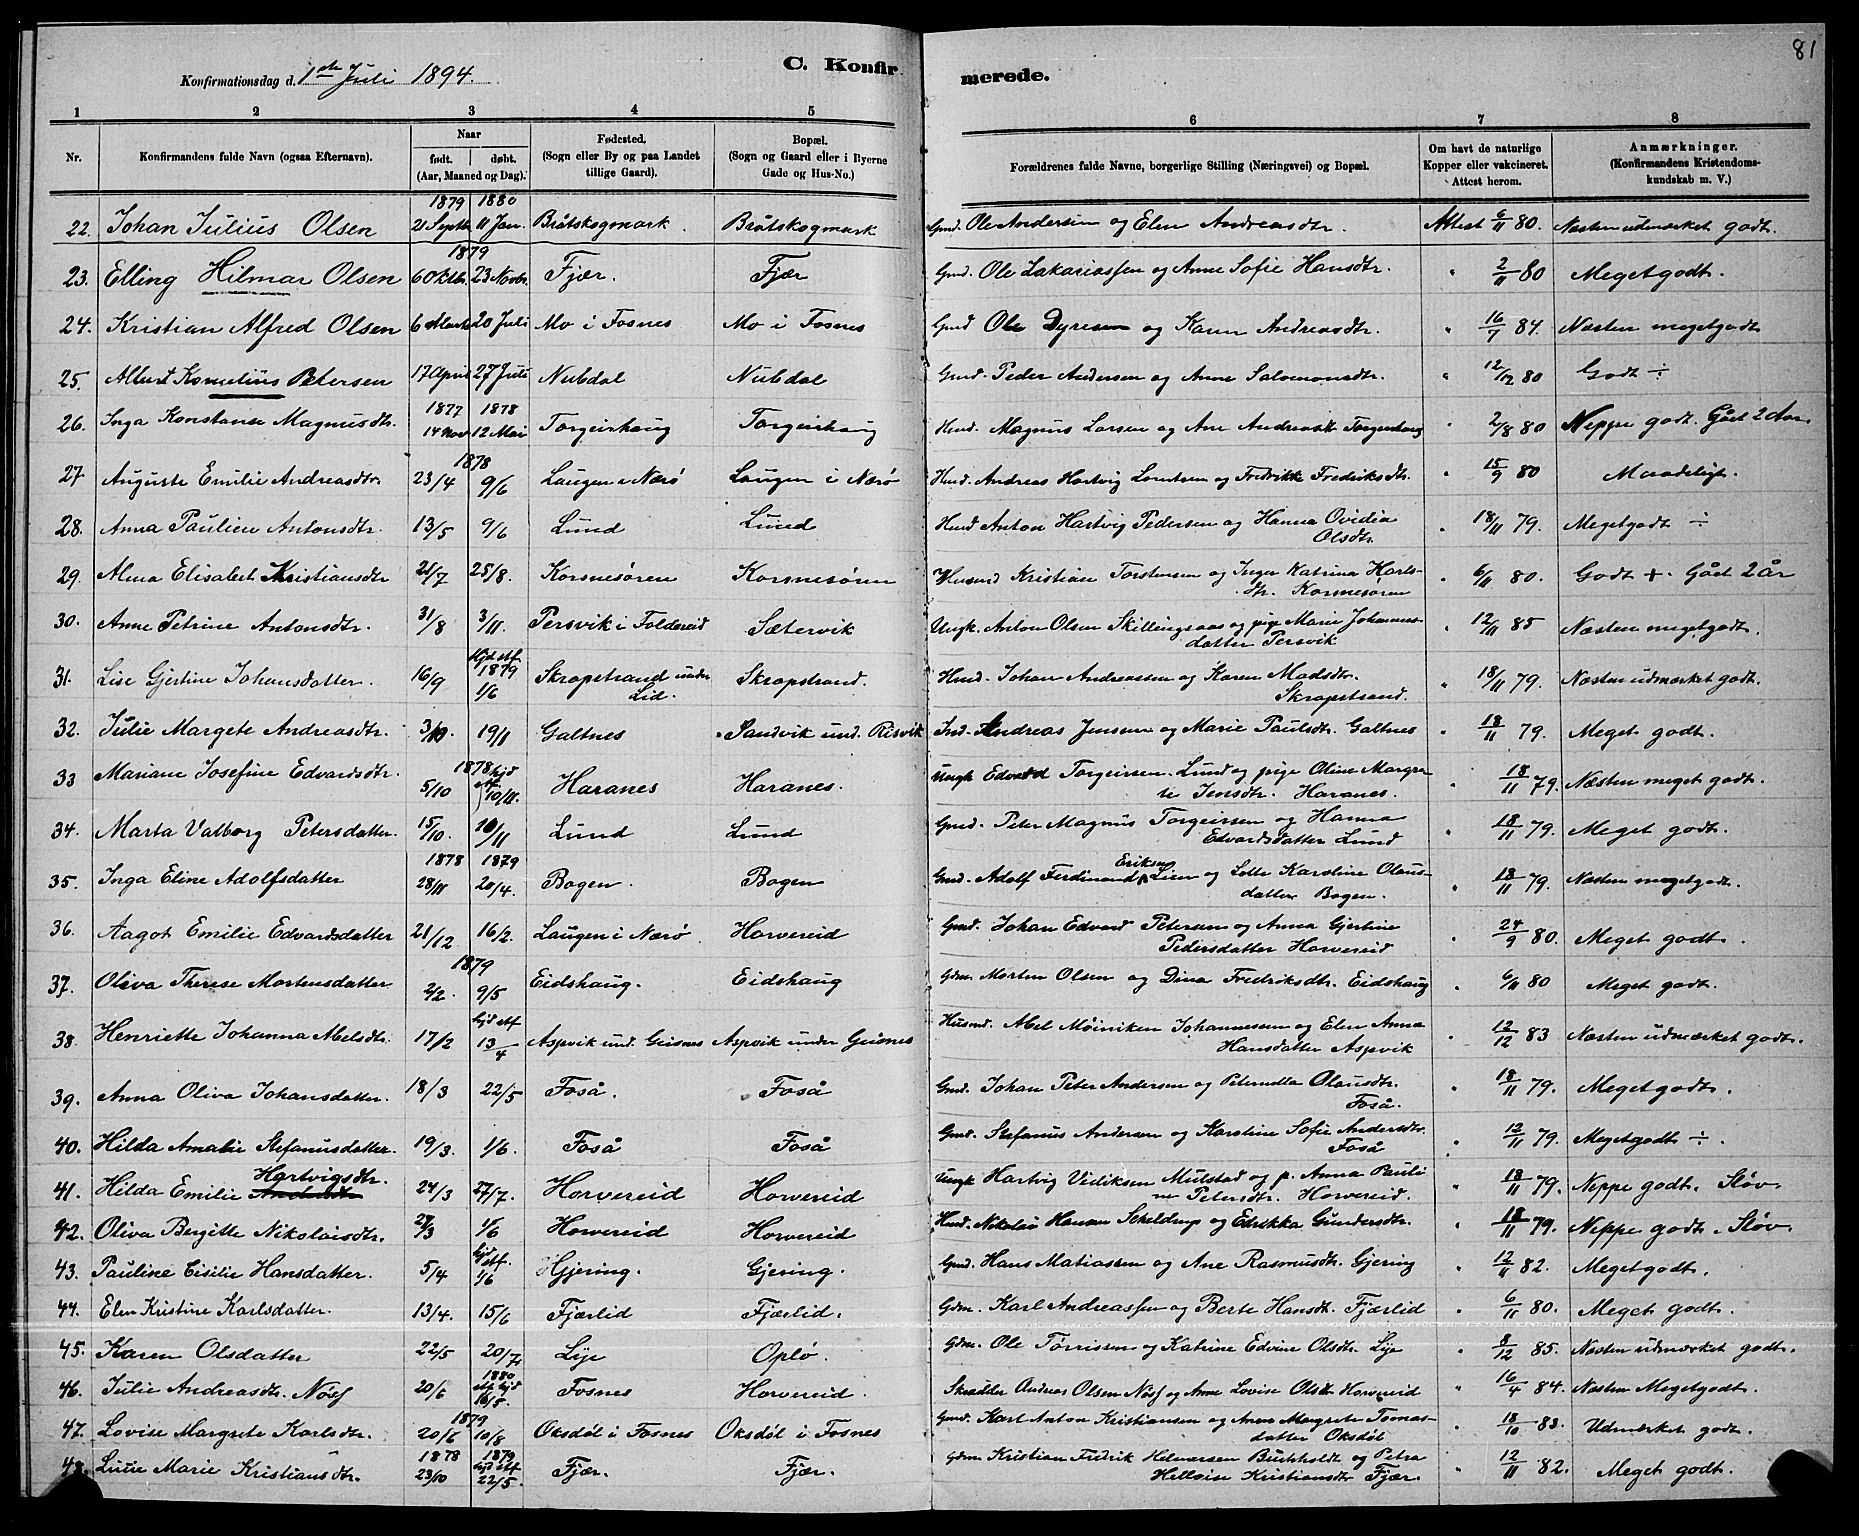 81
Konfirmationsdag d. 1ste Juli 1894.
C. Konfirmerede.
1 2 3 4 5 6 7 8
Nr. Konfirmandens fulde Navn (ogsaa Efternavn). Naar født. døbt. (Aar, Maaned og Dag). Fødested, (Sogn eller By og paa Landet tillige Gaard). Bopæl. (Sogn og Gaard eller i Byerne Gade og Hus-No.) Forældrenes fulde Navne, borgerlige Stilling (Næringsvei) og Bopæl. Om havt de naturlige Kopper eller vakcineret. Attest herom. Anmærkninger. (Konfirmandens Kristendomskundskab m. V.)
1879 1880
22. Johan Julius Olsen 21 Septbr. 11 Jan. Bråtskogmark Bråtskogmark Gmd. Ole Andersen og Elen Andreasdtr. Attest 6/11 80. Næsten udmærket godt.
1879
23. Elling Hilmar Olsen 6 Oktbr. 23 Novbr. Fjær. Fjær Gmd. Ole Zakariassen og Anne Sofie Hansdtr. " 2/11 80 Meget godt.
24. Kristian Alfred Olsen 6 Marts 20 Juli Mo i Fosnes Mo i Fosnes Gmd Ole Dyresen og Karen Andreasdtr. " 16/7 84. Næsten megetgodt
25. Albert Kornelius Petersen 17 April 27 Juli Nubdal Nubdal Gmd. Peder Andersen og Anne Salomonsdtr. " 12/12 80 Godt ÷
1877 1878
26. Inga Konstanse Magnusdtr. 14 Nov 12 Mai Torgeirhaug Torgeirhaug Hmd. Magnus Larsen og Ane Andreasdtr Torgeirhaug " 2/8 80 Neppe godt. Gået 2 Aar.
1878
27 Auguste Emilie Andreasdtr. 23/4 9/6 Laugen i Nærø Laugen i Nærø Hmd. Andreas Hartvig Lorntsen og Fredrikke Fredriksdtr. " 15/9 80 Maadeligt.
28. Anna Pauline Antonsdtr. 13/5 9/6 Lund Lund Hmd Anton Hartvig Pedersen og Hanna Ovidia Olsdtr. " 18/11 79. Megetgodt ÷
29. Alma Elisabet Kristiansdtr 21/7 25/8. Korsnesøren Korsnesøren Husmd Kristian Torstensen og Inger Katrina Karlsdtr. Korsnesøren " 6/11 80. Godt +. Gået 2 år
30. Anne Petrine Antonsdtr. 31/8 3/11. Persvik i Foldereid Sætervik Ungk. Anton Olsen Skillingsaas og pige Marie Johannesdatter Persvik " 12/11 85 Næsten megetgodt.
31. Lise Gjertine Johansdatter. 16/9 hjd stf 1879 1/6 Skrapstrand under Lid. Skrapstrand. Hmd. Johan Andreassen og Karen Madsdtr. Skrapstrand. " 18/11 79. Næsten udmærket godt.
32. Julie Margete Andreasdtr. 3/10. 19/1 Galtnes Sandvik und. Risvik Ind. Andreas Jensen og Marie Paulsdtr. Galtnes " 18/11 79. Meget godt.
33 Mariane Josefine Edvardsdtr. 5/10 1878 hjd stf 10/11. Haranes Haranes. Ungk Edvard Torgeirsen Lund og pige Oline Margrete Jensdtr. Haranes. " 18/11 79. Næsten meget godt.
34. Marta Valborg Petersdatter. 15/10. 10/11 Lund Lund Gmd. Peter Magnus Torgeirsen og Hanna Edvardsdatter Lund " 18/11 79. Meget godt.
1878 1879
35. Inga Eline Adolfsdatter 28/11 20/4. Bogen. Bogen Gmd. Adolf Ferdinand Eriksen Lien og Lotte Karoline Olausdatter Bogen. " 18/11 79. Næsten megetgodt.
36. Aagot Emilie Edvardsdatter 21/12 16/2. Laugen i Nærø. Horvereid Gmd. Johan Edvard Petersen og Anna Gjertine Pedersdatter Horvereid " 24/9 80. Meget godt.
1879
37. Oliva Therese Mortensdatter 2/2. 9/5 Eidshaug. Eidshaug Gdm. Morten Olsen og Dina Fredriksdtr. Eidshaug " 6/11 80 Meget godt.
38. Henriette Johanna Abelsdtr. 17/2 hjd stf 13/4 Aspvik und. Geisnes Aspvik under Geisnes Husmd. Abel Møiniken Johannesen og Elen Anna Hansdatter Aspvik " 12/12 83 Næsten udmærket godt.
39. Anna Oliva Johansdatter. 18/3 22/5 Foså. Foså Gmd. Johan Peter Andersen og Peternella Olausdtr. Foså. " 18/11 79. Megetgodt.
40. Hilda Amalie Stefanusdatter. 19/3. 1/6. Foså Foså Gmd. Stefanus Andersen og Karstine Sofie Andersdtr. Foså " 12/11 79. Megetgodt ÷.
41. Hilda Emilie Hartvigsdtr. 24/3 27/7. Horvereid Horvereid Ungk Hartvig Vidiksen Mulstad og p. Anna Pauline Petersdtr. Horvereid. " 18/11 79. Neppe godt. Sløv.
42. Oliva Bergitte Nikolaisdtr. 27/3 1/6 Horvereid Horvereid Hmd. Nikolai Hansen Scheldrup og Edrikka Gundersdtr. " 18/11 79. Neppe godt. Sløv.
43. Pauline Cisilie Hansdatter. 5/4 hjd stf. 1/6 Gjering. Gjering. Gmd. Hans Matiassen og Ane Rasmusdtr. Gjering " 12/11 82. Megetgodt.
44. Elen Kristine Karlsdatter. 13/4. 15/6 Fjærlid Fjærlid. Gdm. Karl Andreassen og Berte Hansdtr. Fjærlid " 6/11 80. Meget godt.
45. Karen Olsdatter 22/5 20/7 Lije Oplø. Gdm. Ole Tørrissen og Katrine Edvine Olsdtr. Lije " 8/12 85. Næsten udmærket godt.
46. Julie Andreasdtr. Nøss 20/6 1880 stf hjd 16/5. Fosnes Horvereid. Skrædder Andreas Olsen Nøss og Anne Lovise Olsdtr Horvereid " 16/4 84. Næsten Megetgodt.
1879
47. Lovise Margrete Karlsdtr. 20/6 10/8 Oksdøl i Fosnes Oksdøl i Fosnes Gmd. Karl Anton Kristiansen og Anne Margrete Tomasdatter Oksdøl " 18/10 83. Udmærket godt.
48. Lutie Marie Kristiansdtr. 1878 23/10 1879 hjd stf 22/5. Fjær. Fjær. Gdm Kristian Fredrik Helmersen Buchholdt og Petra Helloise Kristiansdtr Fjær. " 12/11 82. Meget godt.